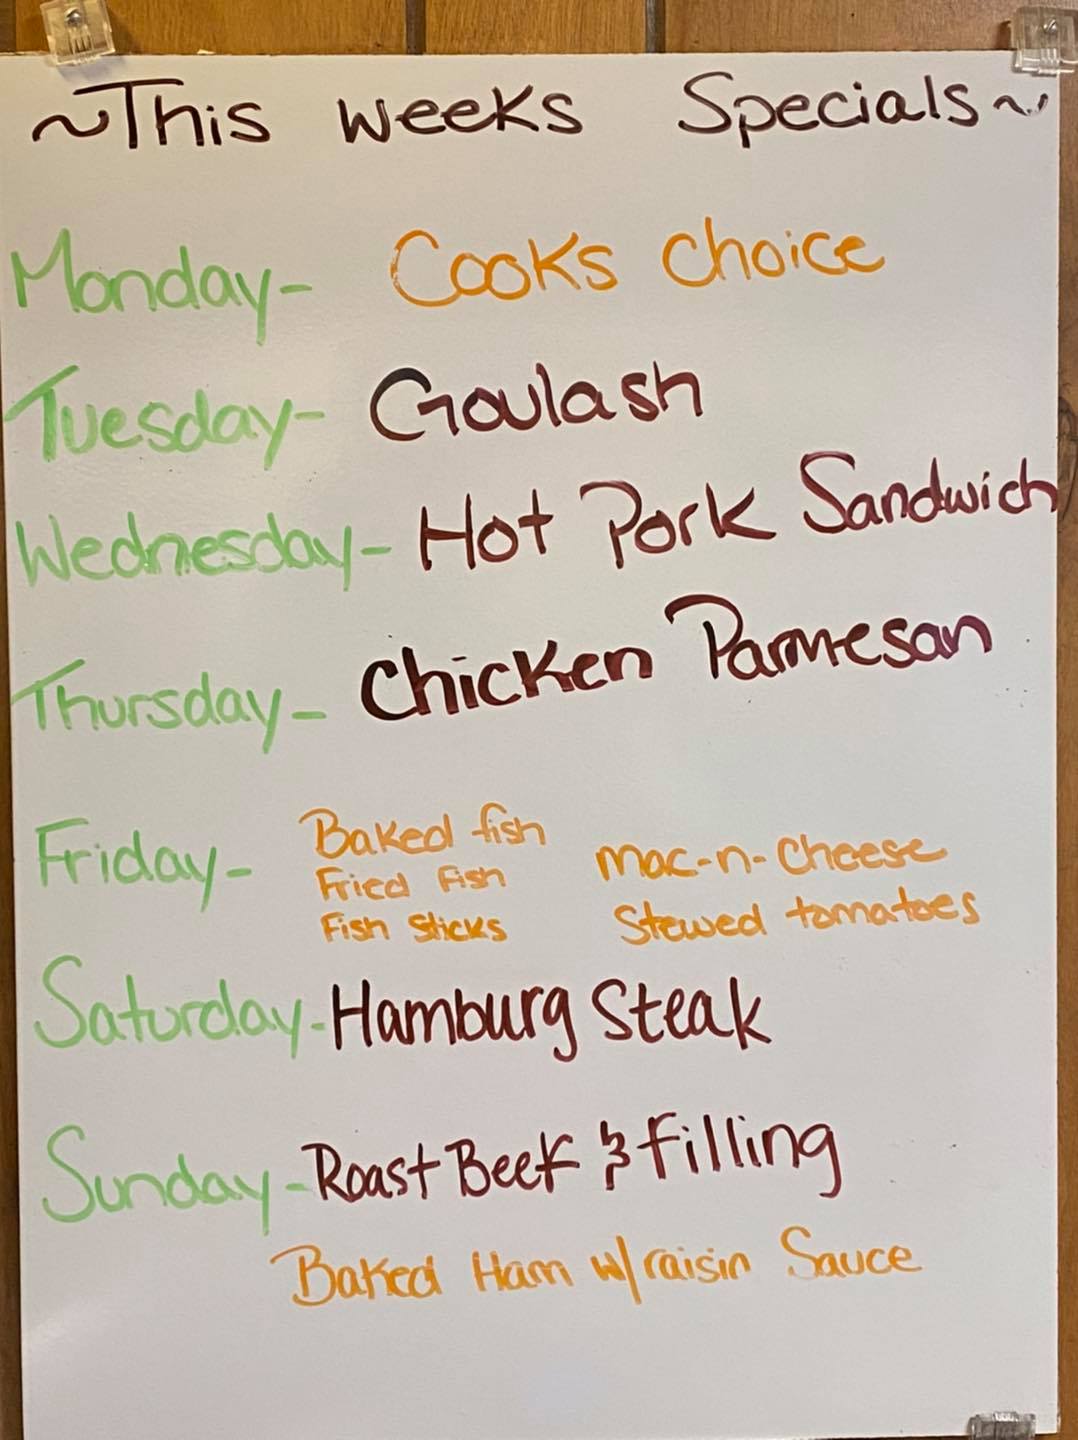 ~This weeks Specials~
Monday- Cooks choice
Tuesday- Goulash
Wednesday- Hot Pork Sandwich
Thursday- Chicken Parmesan
Friday- Baked fish Mac-n-Cheese
Fried Fish
Fish Sticks Stewed tomatoes
Saturday- Hamburg Steak
Sunday- Roast Beef & Filling
Baked Ham w/raisin Sauce